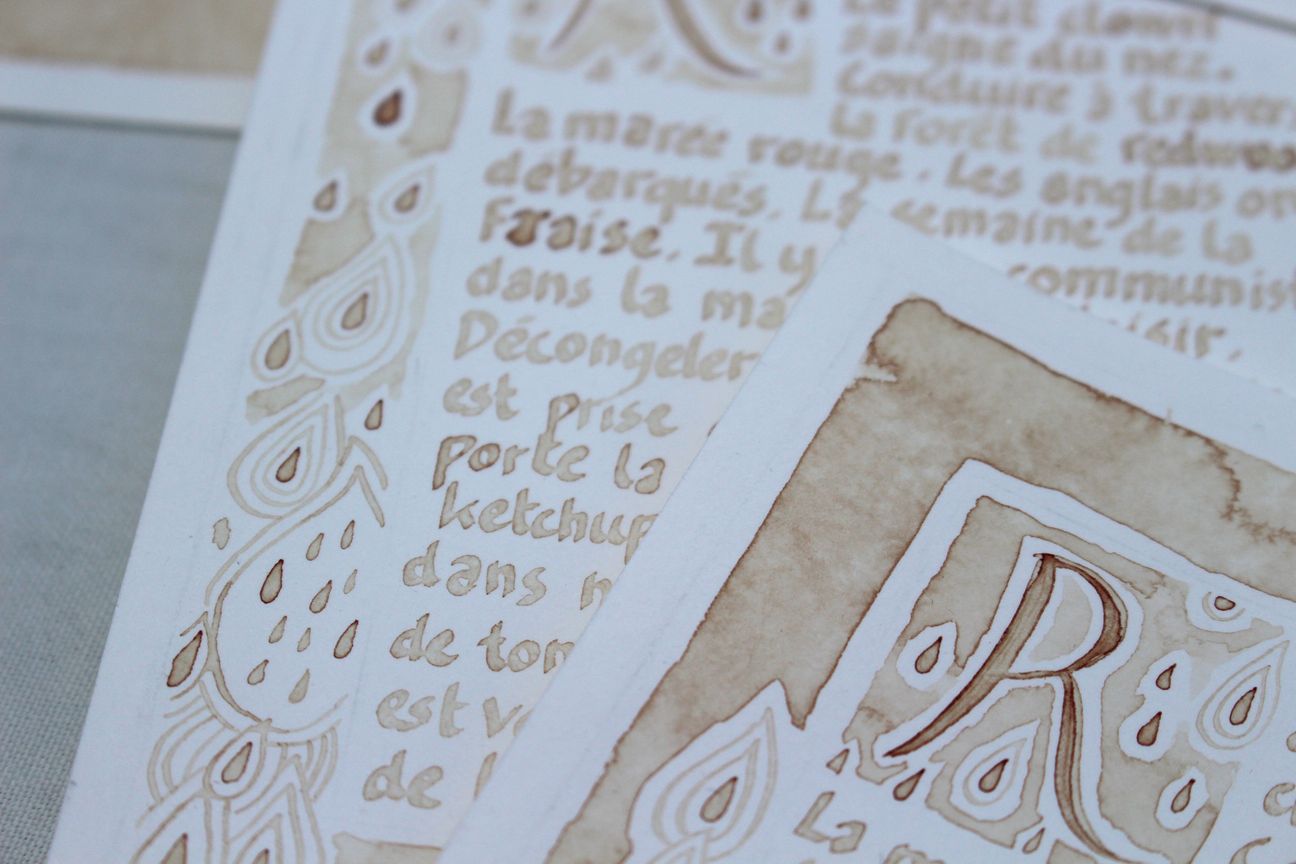 R
Le petit clown
saigne du nez.
Conduire à travers
la forêt de redwoo
La marée rouge. Les anglais on
débarqués. La semaine de la
Fraise. Il y communist
dans la ma
Décongeler
est prise
porte la
ketchup
dans
de tom
est v
de
R
La